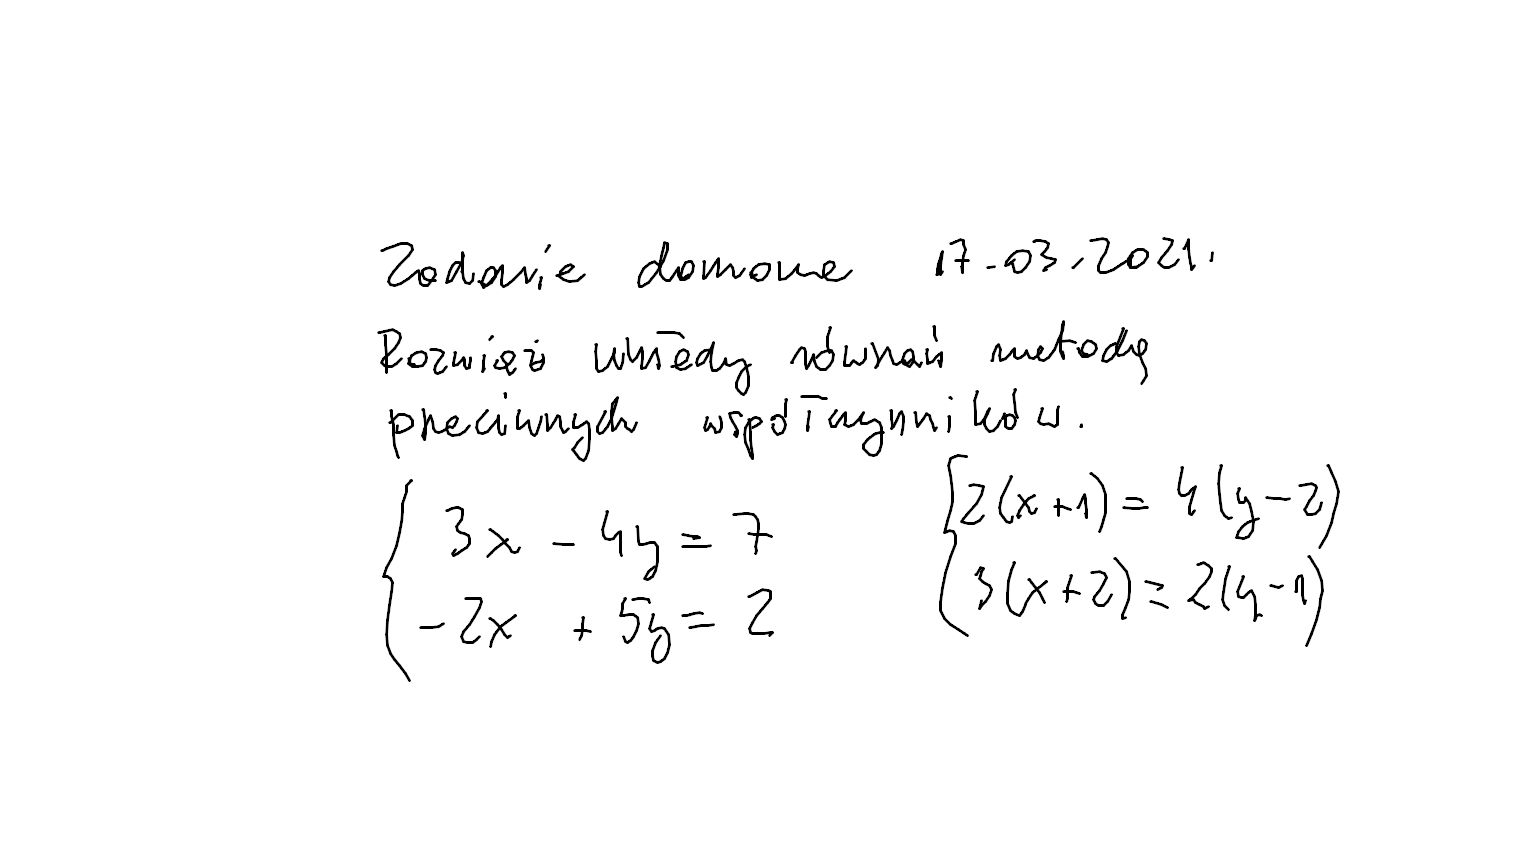 Zadanie domowe 17.03.2021.
Rozwiąż układy równań metodą
przeciwnych współczynników.
3x - 4y = 7
-2x + 5y = 2
2(x+1) = 4(y-2)
3(x+2) = 2(y-1)